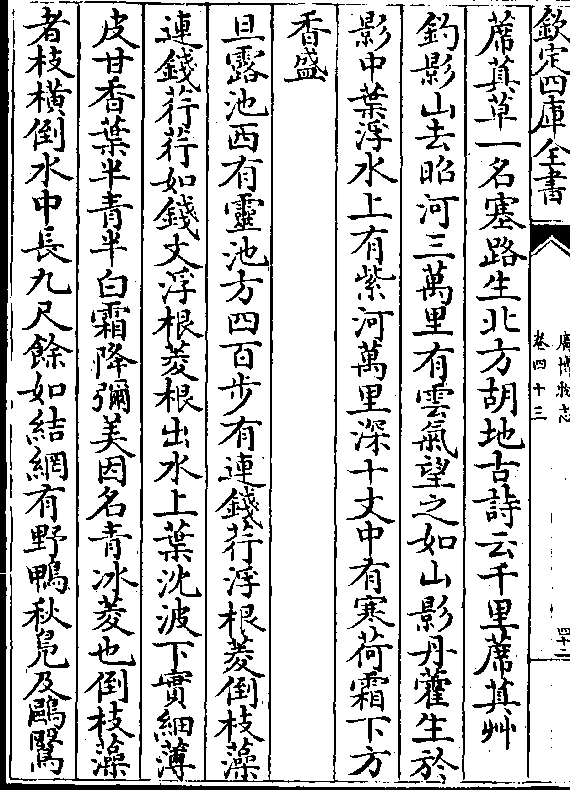 欽定四庫全書
廣博物志
卷四十三
四十二
蓆萁草一名塞路生北方胡地古詩云千里蓆萁艸
釣影山去昭河三萬里有雲氣望之如山影丹藿生於
影中葉浮水上有紫河萬里深十丈中有寒荷霜下方
香盛
旦露池西有靈池方四百步有連錢荇浮根菱倒枝藻
連錢荇荇如錢文浮根菱根出水上葉沈波下實細薄
皮甘香葉半青半白霜降彌美因名青冰菱也倒枝藻
者枝橫倒水中長九尺餘如結網有野鴨秋鳧及鷗鷖